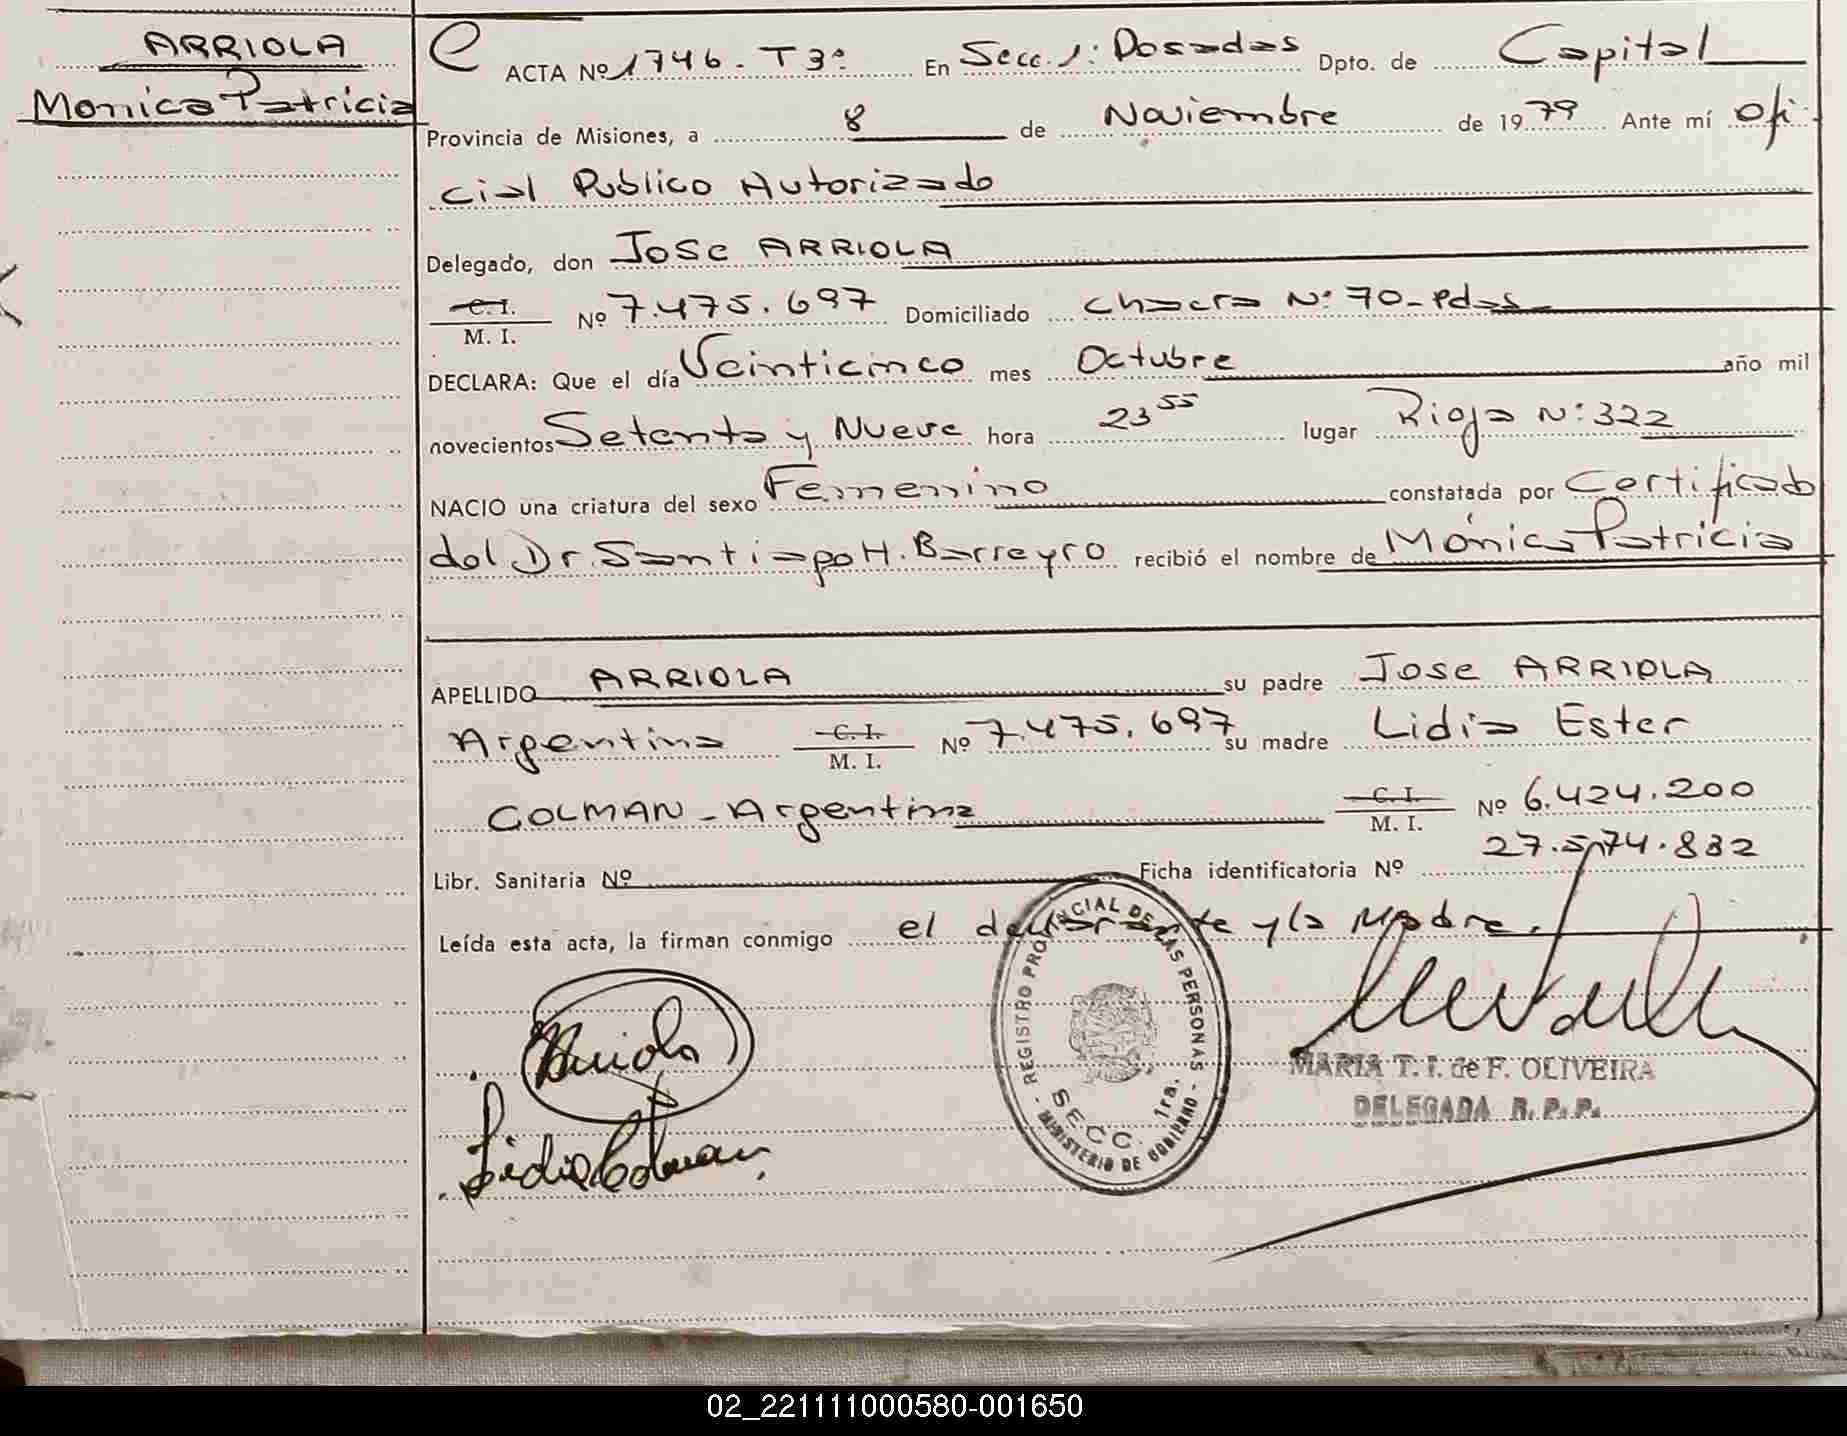 ARRIOLA
Monica Patricia
ACTA Nº 1746. T3º En Secc. 1: Posadas Dpto. de Capital
Provincia de Misiones, a 8 de Noviembre de 1979 Ante mí Ofi
cial Publico Autorizado
Delegado, don Jose ARRIOLA
C. I.
M. I. Nº 7.475.697 Domiciliado Chacra Nº 70-Pdas
DECLARA: Que el día Veinticinco mes Octubre año mil
novecientos Setenta y Nueve hora 23 55 lugar Rioja Nº 322
NACIO una criatura del sexo Femenino constatada por Certificado
del Dr. Santiago H. Barreyro recibió el nombre de Mónica Patricia
APELLIDO ARRIOLA su padre Jose ARRIOLA
Argentino C. I. M. I. Nº 7.475.697 su madre Lidia Ester
COLMAN - Argentina C. I. M. I. Nº 6.424.200
Libr. Sanitaria Nº Ficha identificatoria Nº 27.574.832
Leída esta acta, la firman conmigo el declarante y la Madre.
Arriola
Lidia Colman
REGISTRO PROVINCIAL DE LAS PERSONAS
SECC. 1ra.
MINISTERIO DE GOBIERNO
MARIA T. I. de F. OLIVEIRA
DELEGADA R. P. P.
02_221111000580-001650